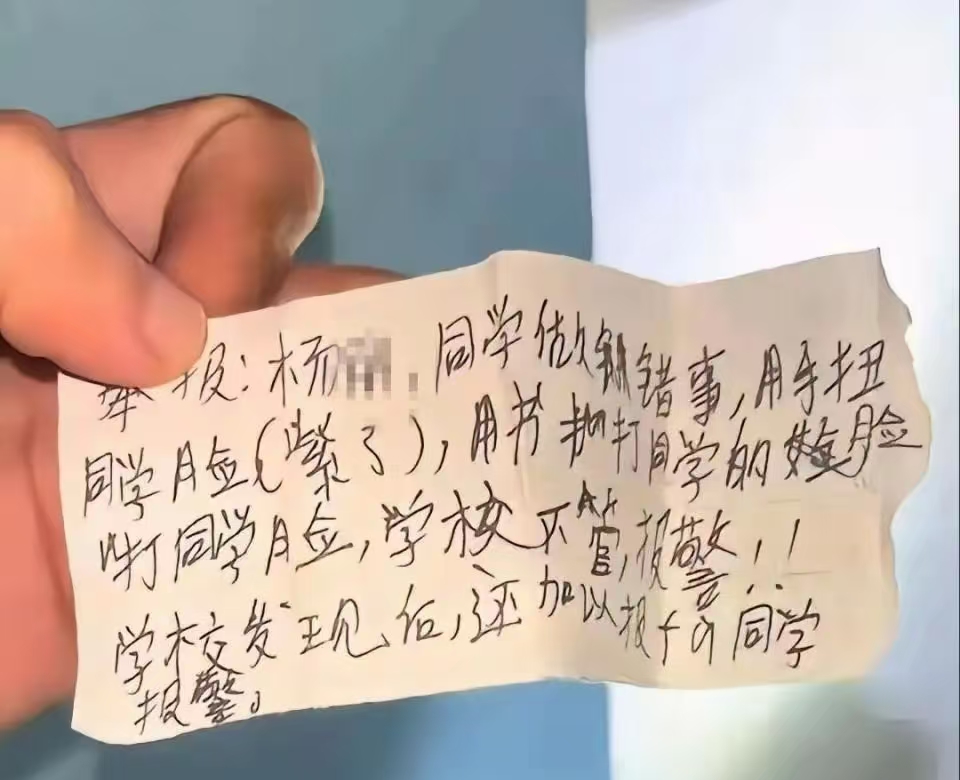 举报:杨 ,同学做错事,用手扭
同学脸(紫了),用书打同学的脸
打同学脸,学校不管,报警!!
学校发现后,还加以报 同学
报警。